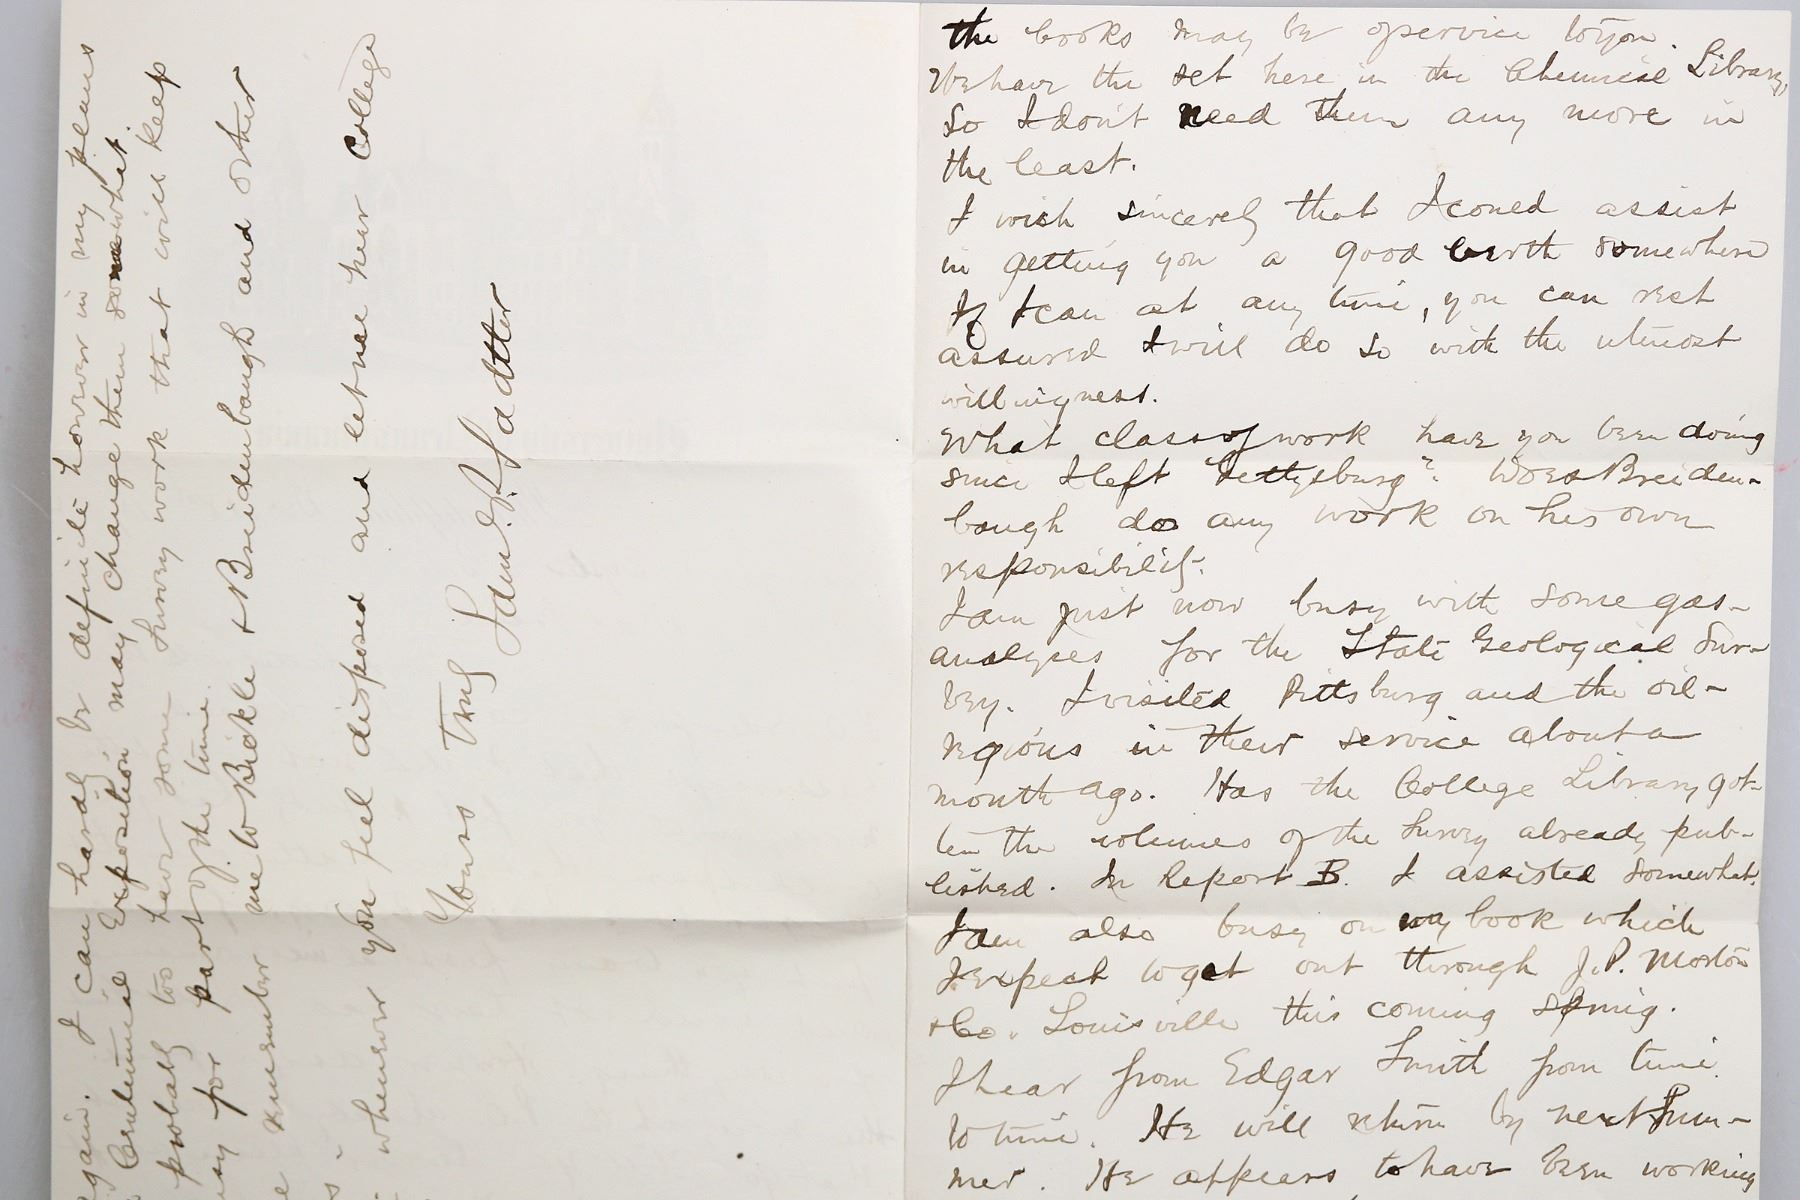 the books may be of service to you.
We have the set here in the Chemical Library,
So I don't need them any more in
the least.
I wish sincerely that I could assist
in getting you a good berth somewhere
If I can at any time, you can rest
assured I will do so with the utmost
willingness.
What class of work have you been doing
since I left Gettysburg? Does Breiden-
baugh do any work on his own
responsibility.
I am just now busy with some gas-
analyses for the State Geological Sur-
vey. I visited Pittsburg and the oil-
regions in their service about a
month ago. Has the College Library got-
ten the volumes of the Survey already pub-
lished. In Report B. I assisted somewhat.
I am also busy on my book which
I expect to get out through J.P. Morton
+ Co. Louisville this coming Spring.
I hear from Edgar Smith from time
to time. He will return by next Sum-
mer. He appears to have been working
again. I can hardly be definite however in my plans
Centennial Exposition may change them somewhat.
probably too have some Survey work that will keep
for part of the time.
remember me to Bickle + Breidenbaugh and other
whenever you feel disposed and let me hear College
Yours Truly
Saml. P. Sadtler